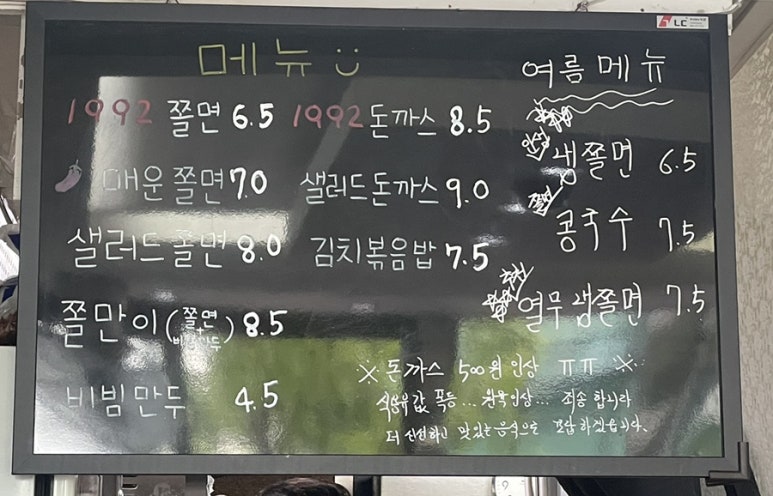 메뉴
1992 쫄면 6.5
매운쫄면 7.0
샐러드쫄면 8.0
쫄만이 (쫄면+비빔만두) 8.5
비빔만두 4.5
1992 돈까스 8.5
샐러드돈까스 9.0
김치볶음밥 7.5
여름메뉴
냉쫄면 6.5
콩국수 7.5
열무냉쫄면 7.5
※ 돈까스 500원 인상 ㅠㅠ ※
식용유값 폭등... 원육인상... 죄송합니다
더 신선하고 맛있는 음식으로 보답하겠습니다.
LC